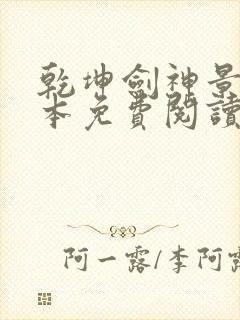 乾坤劍神景
本免費閱讀
阿一露/李阿露